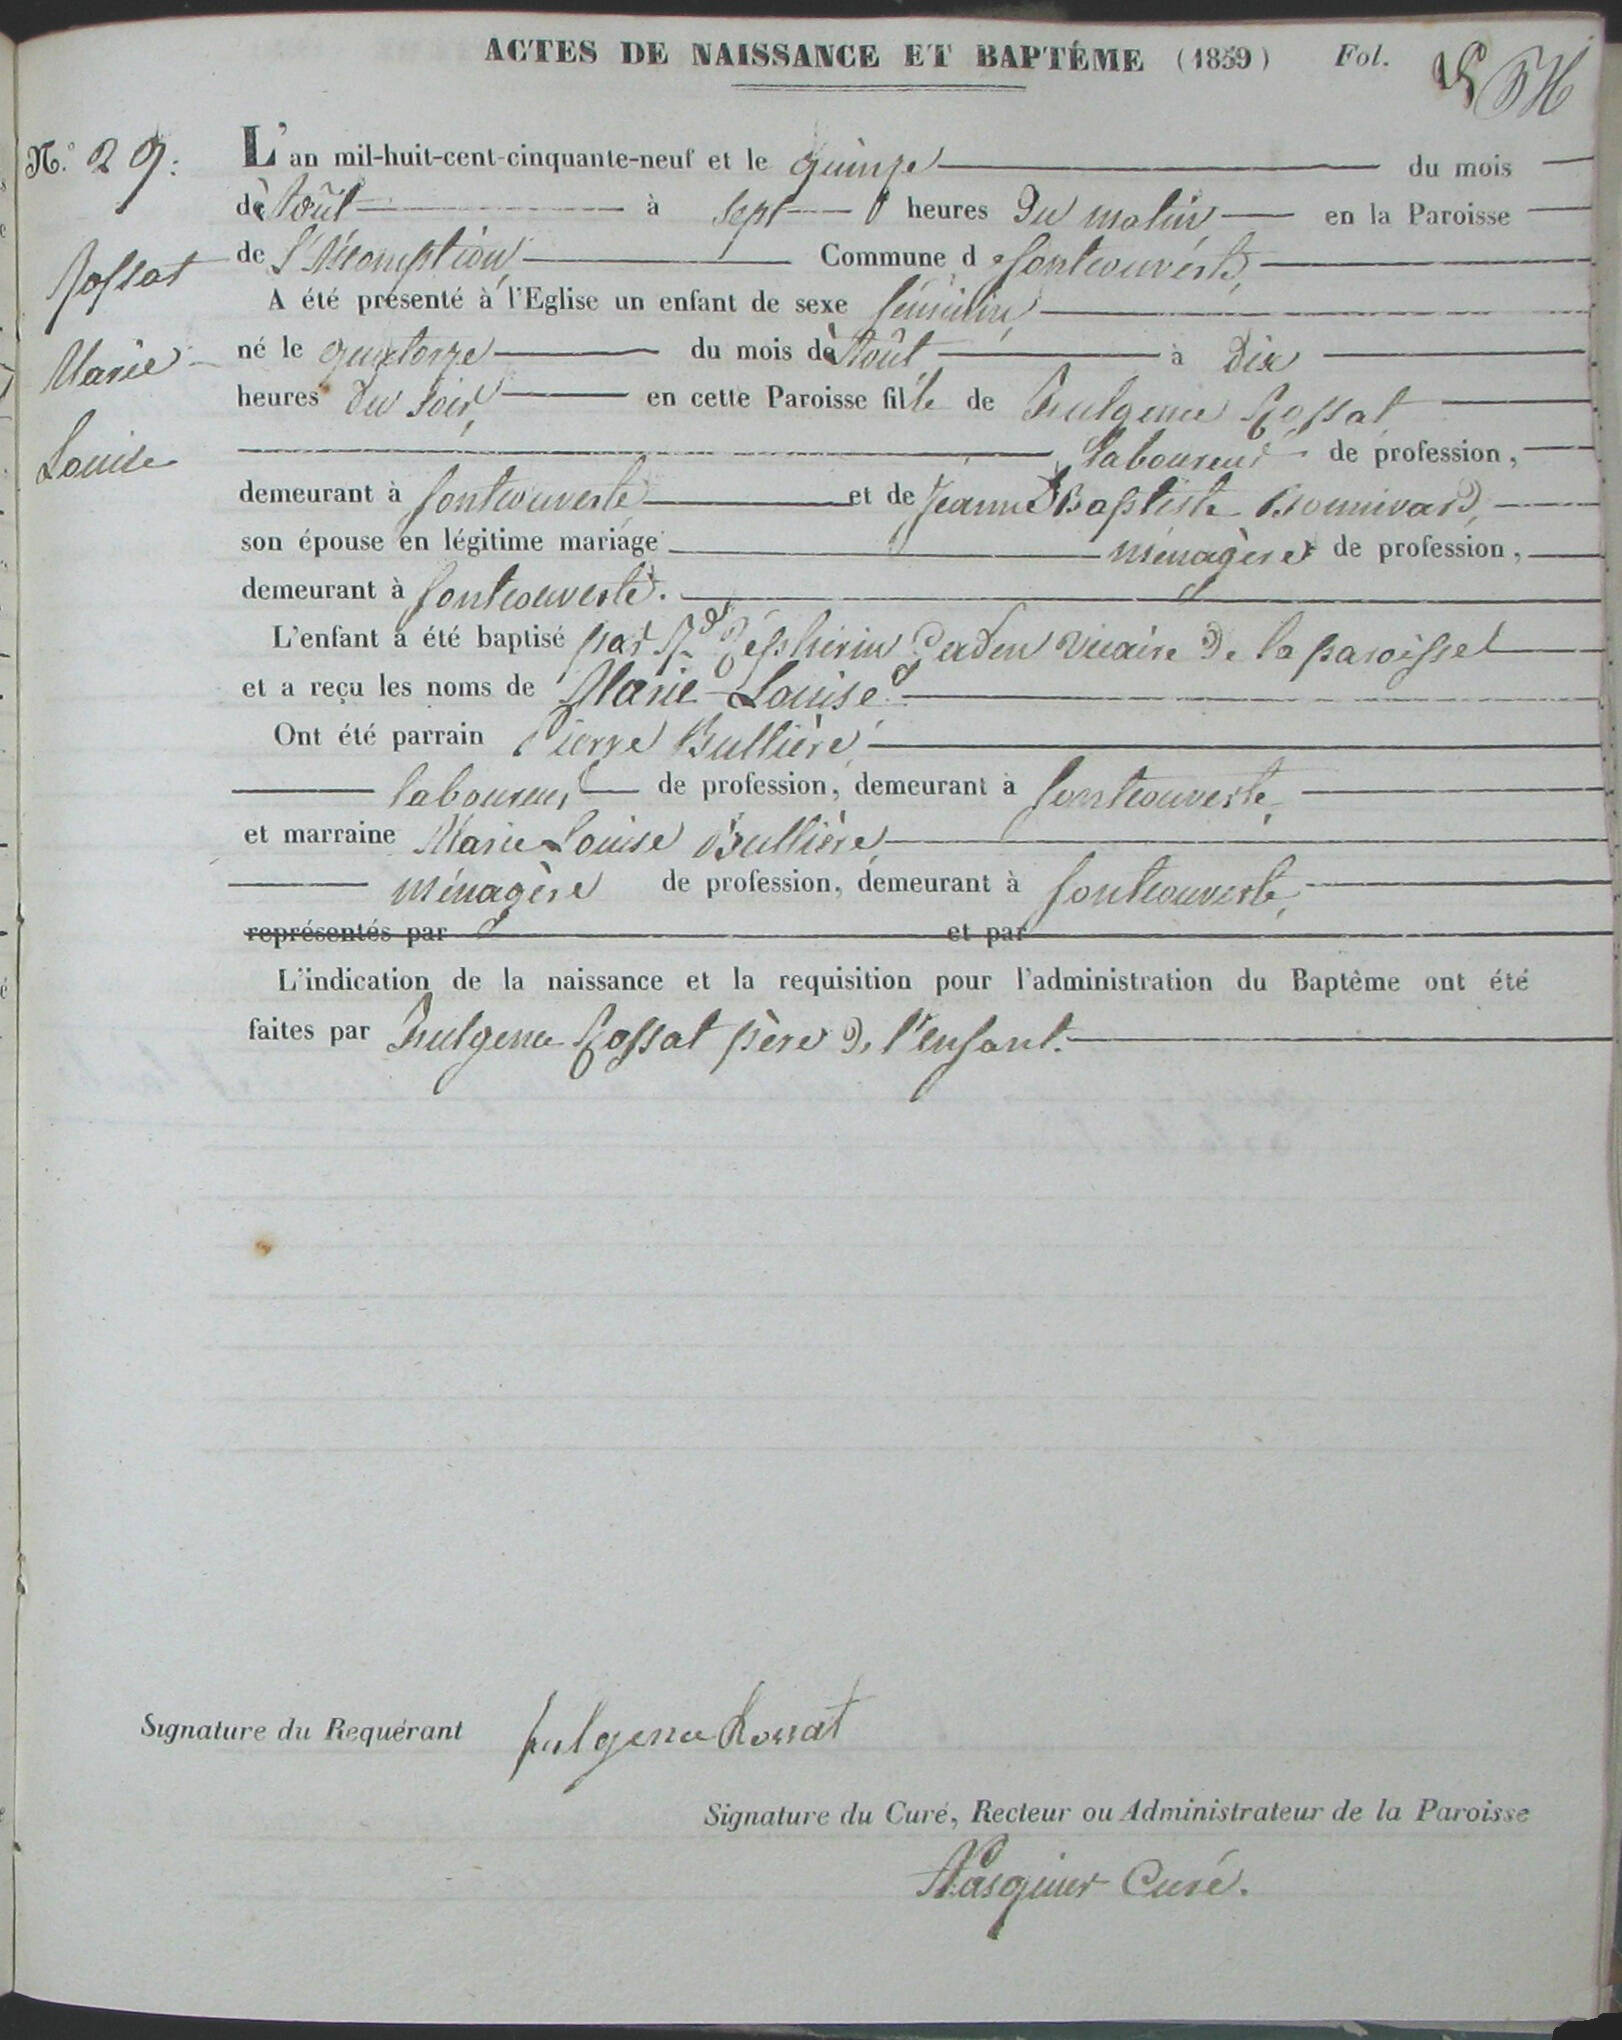 ACTES DE NAISSANCE ET BAPTÊME (1859) Fol. 15
N.° 29.
Rossat
Marie
Louise
L'an mil-huit-cent-cinquante-neuf et le quinze du mois
d'Août à sept heures du matin en la Paroisse
de l'Assomption Commune de Fontcouverte,
A été présenté à l'Eglise un enfant de sexe féminin
né le quatorze du mois d'Août à dix
heures du soir, en cette Paroisse fille de Fulgence Rossat
laboureur de profession,
demeurant à Fontcouverte et de Jeanne Baptiste Bonnivard,
son épouse en légitime mariage ménagère de profession,
demeurant à Fontcouverte.
L'enfant a été baptisé par Rd Zéphirin vicaire de la paroisse
et a reçu les noms de Marie Louise.
Ont été parrain Pierre Bullière,
laboureur de profession, demeurant à Fontcouverte,
et marraine Marie Louise Bullière,
ménagère de profession, demeurant à Fontcouverte,
représentés par et par
L'indication de la naissance et la requisition pour l'administration du Baptême ont été
faites par Fulgence Rossat père de l'enfant.
Signature du Requérant fulgence Rossat
Signature du Curé, Recteur ou Administrateur de la Paroisse
Pasquier Curé.